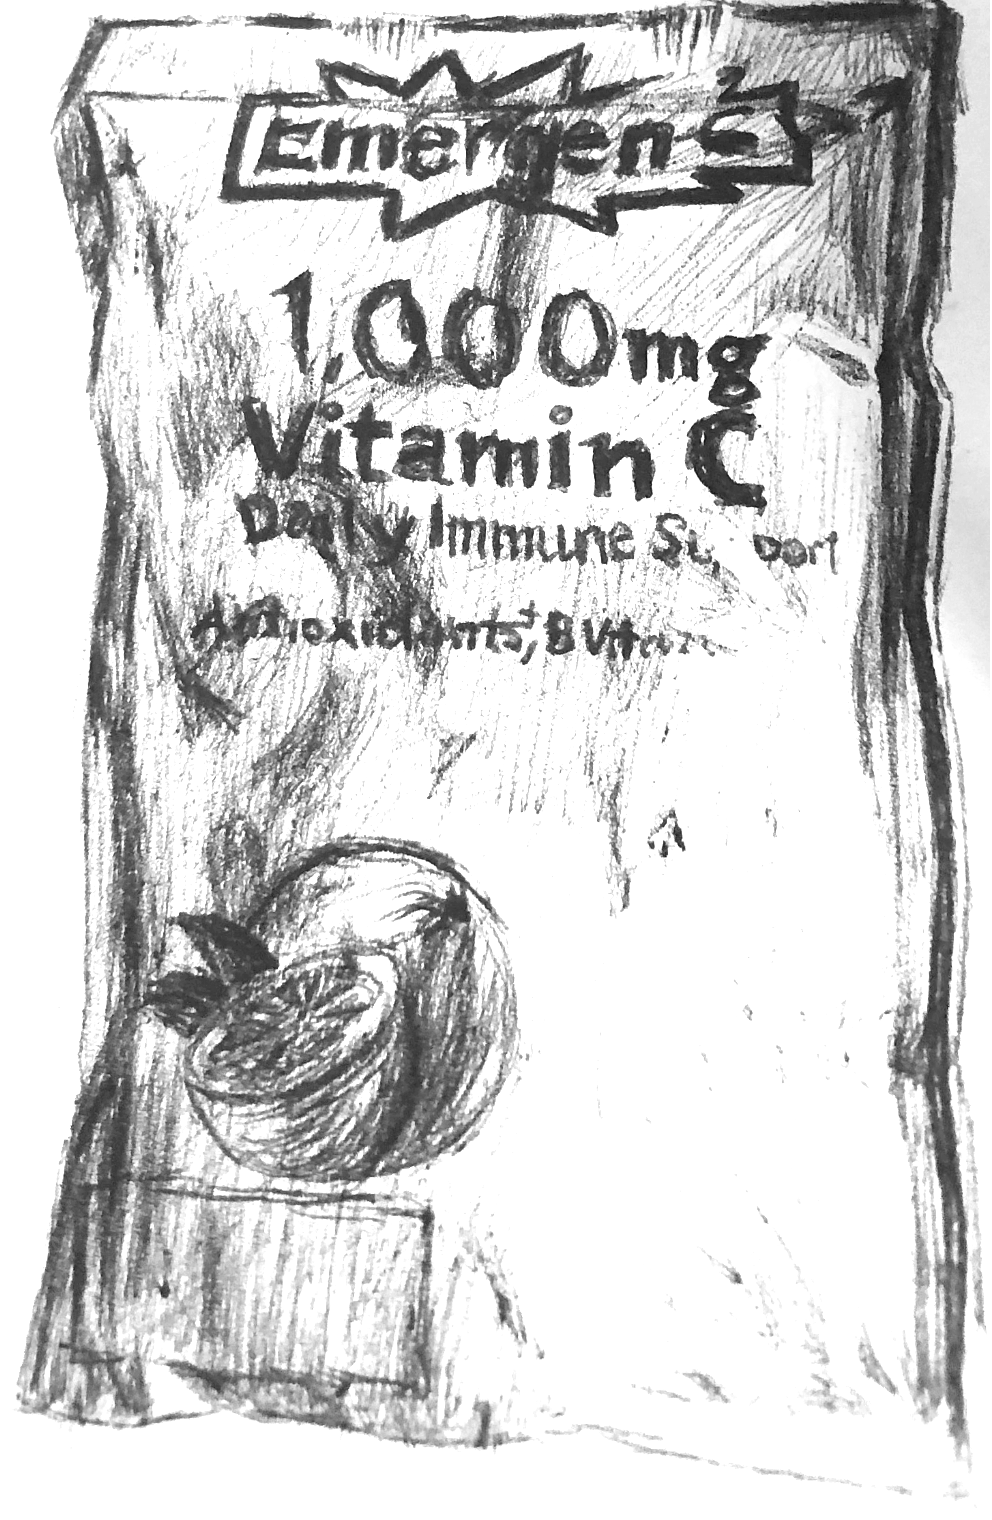 Emergen-C
1,000mg
Vitamin C
Daily Immune Support
Antioxidants‡, B